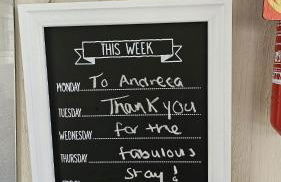 THIS WEEK
MONDAY To Andreea
TUESDAY Thank you
WEDNESDAY for the
THURSDAY fabulous
stay!